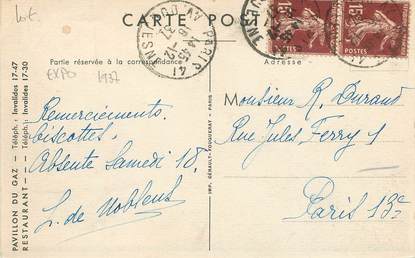 Lot.
CARTE POSTALE
Partie réservée à la correspondance
Adresse
EXPO 1937
PARIS 41
AV. DUQUESNE
POSTES
15
POSTES
Remerciements.
biscottes.
Absente Samedi 18.
L. de Noblens
Monsieur R. Durand
Rue Jules Ferry 1
Paris 13e
PAVILLON DU GAZ — Téléph.: Invalides 17-47
RESTAURANT — Téléph.: Invalides 17-30
IMP. GÉRAULT-FOUQUERAY - PARIS